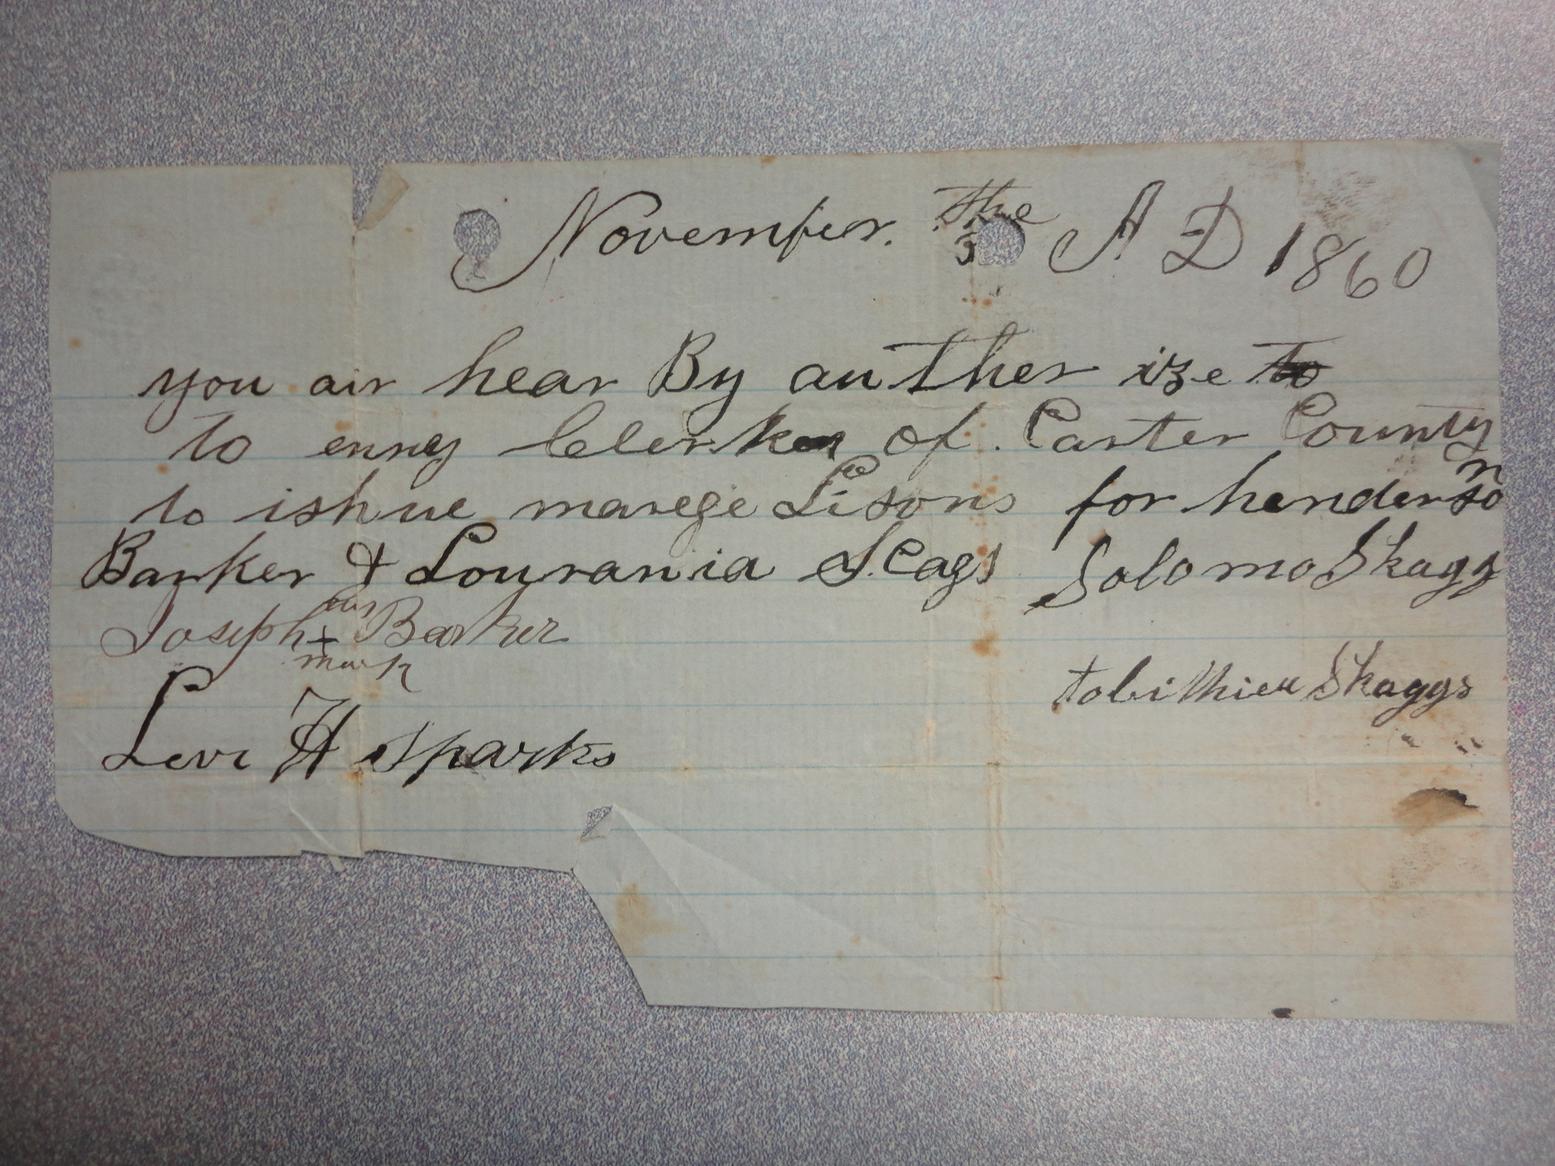 November. the 3 A D 1860
you air hear By auther ize to
to enny Clerk of. Carter County
to ishue marege Lisons for henderson
Barker & Lourania Scags Solomo Skaggs
Joseph his + mark Barker
tobithieu Skaggs
Levi H Sparks